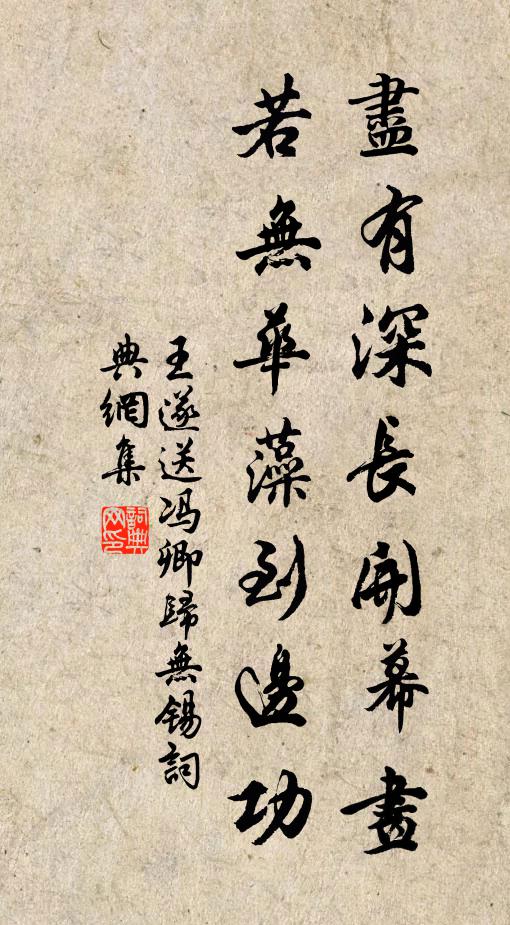 盡有深長開幕畫
若無華藻到邊功
王遂送冯卿歸無錫詞
典網集
詞典
网印